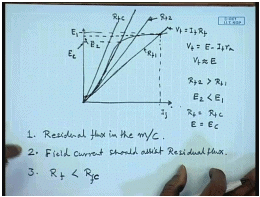 Rfc
Rf2
Vt = If Rf
E1
E2
Rf1
Vt = E - Ia ra
Vt ≈ E
Rf2 > Rf1
E2 < E1
Rf = Rfc
E = Ec
If
1. Residual flux in the m/c.
2. Field current should assist Residual flux.
3. Rf < Rfc